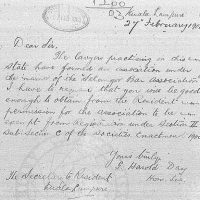 1200
03
Kuala Lumpur
27 February 190
Dear Sir,
The lawyers practising in this
state have formed an association under
the name of the "Selangor Bar Association".
I have to request that you will be good
enough to obtain from the Resident
permission for the association to be
exempt from registration under Section III
Sub-section C of the Societies Enactment 190
Yours truly
Harold Day
Hon. Sec.
The Secretary to Resident
Kuala Lumpur